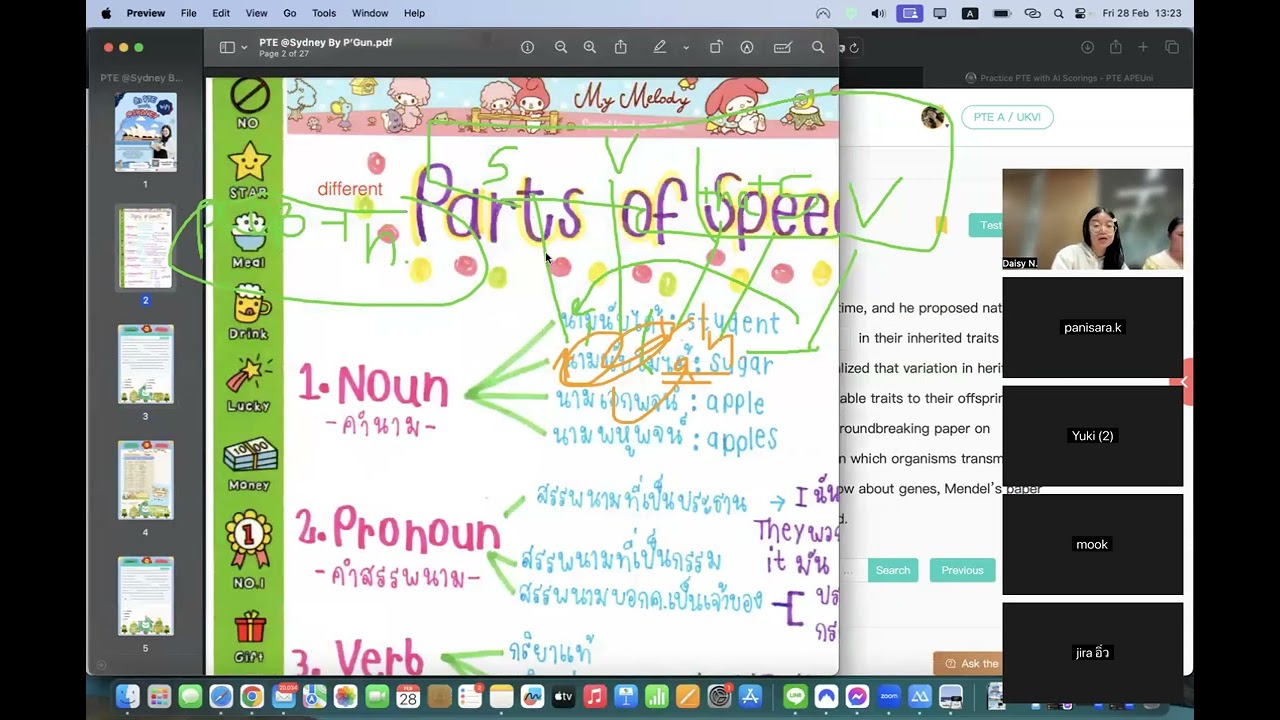 Preview File Edit View Go Tools Window Help
A Fri 28 Feb 13:23
PTE @Sydney B...
PTE @Sydney By P'Gun.pdf
Page 2 of 27
1
2
3
4
5
NO
STAR
Meal
Drink
Lucky
Money
NO.1
Gift
My Melody
different
Parts of Speec
S V
1. Noun
-คำนาม-
นามนับได้ : student
นามนับไม่ได้ : sugar
นามเอกพจน์ : apple
นามพหูพจน์ : apples
2. Pronoun
-คำสรรพนาม-
สรรพนามที่เป็นประธาน → I ฉัน
They พวก
it มัน
สรรพนามที่เป็นกรรม
สรรพนามบอกค.เป็นเจ้าของ
3. Verb
กริยาแท้
Practice PTE with AI Scorings - PTE APEUni
PTE A / UKVI
Test
time, and he proposed nat
in their inherited traits
alized that variation in heri
able traits to their offsprin
roundbreaking paper on
n which organisms transm
ow about genes, Mendel's paper
d.
Search Previous
Ask the
Daisy N.
panisara.k
Yuki (2)
mook
jira อิ๋ว
20,034
FEB
28
tv
zoom